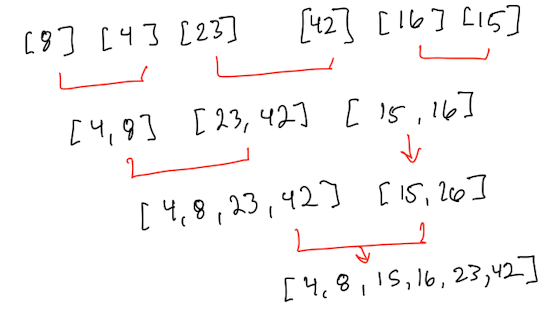 [8] [4] [23] [42] [16] [15]
[4,8] [23,42] [15,16]
[4,8,23,42] [15,26]
[4,8,15,16,23,42]